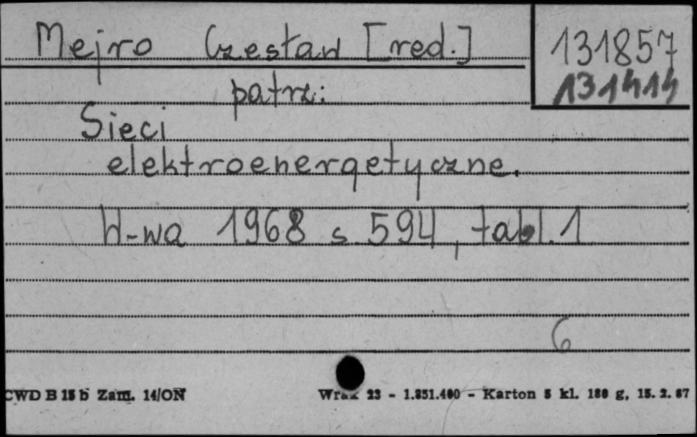 Mejro Czesław [red.]
131857
131414
patrz:
Sieci
elektroenergetyczne.
W-wa 1968 s. 594, tabl. 1
6
CWD B 15 b Zam. 14/ON
23 - 1.851.400 - Karton 5 kl. 180 g, 15. 2. 67